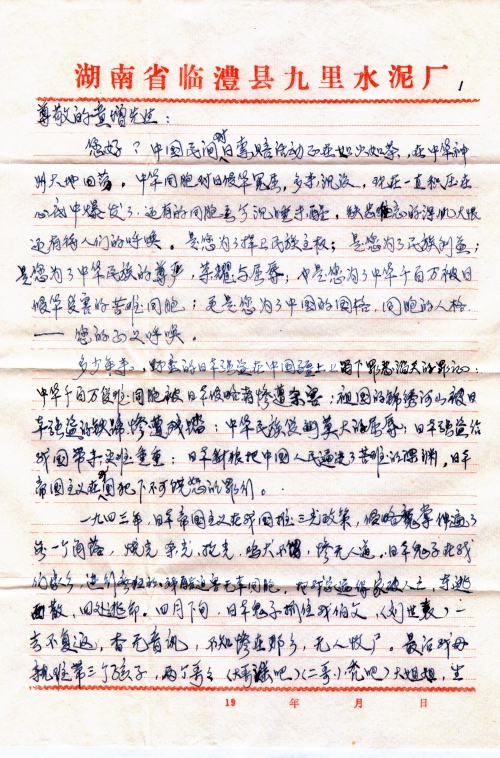 湖南省临澧县九里水泥厂
1
尊敬的童增先生：
您好？中国民间对日索赔活动正在如火如荼，在中华神
州大地回荡。中华同胞对日侵华冤屈，多年沉没，现在一直积压在
心底中爆发了，还有的同胞至今沉睡未醒，
还有待人们的呼唤。是您为了捍卫民族主权；是您为了民族利益；
是您为了中华民族的尊严，荣耀与屈辱；也是您为了中华千百万被日
侵华受害的苦难同胞；更是您为了中国的国格，同胞的人格
——您的正义呼唤。
多少年来，野蛮的日军强盗在中国疆土上犯下罪恶滔天的罪行：
中华千百万受难同胞被日军侵略者惨遭杀害；祖国的锦绣河山被日
军强盗的铁蹄惨遭践踏；中华民族受到莫大的屈辱；日军强盗给
我国带来灾难重重；日军
把中国人民逼进了苦难的深渊，日军
帝国主义在我国犯下不可饶恕的罪行。
一九四三年，日军帝国主义在我国推三光政策，侵略魔掌伸遍了
每一个角落，烧光杀光抢光，鸡犬不留，惨无人道。日军鬼子在我
的家乡，进行疯狂的
家破人亡，东逃
西散，四处逃命。四月下旬，日军鬼子抓住我伯父，（刘世
）一
去不复返，杳无音讯，不知惨死在那乡，无人收尸。最后我母
亲难带三个孩子，两个哥哥（大哥
吧）（二哥小
吧）大姐姐，坐
19 年 月 日